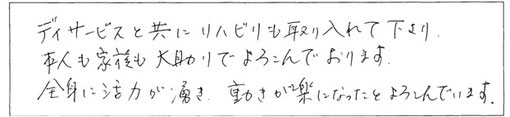 デイサービスと共にリハビリも取り入れて下さり、
本人も家族も大助りでよろこんでおります。
全身に活力が湧き、動きが楽になったとよろこんでいます。